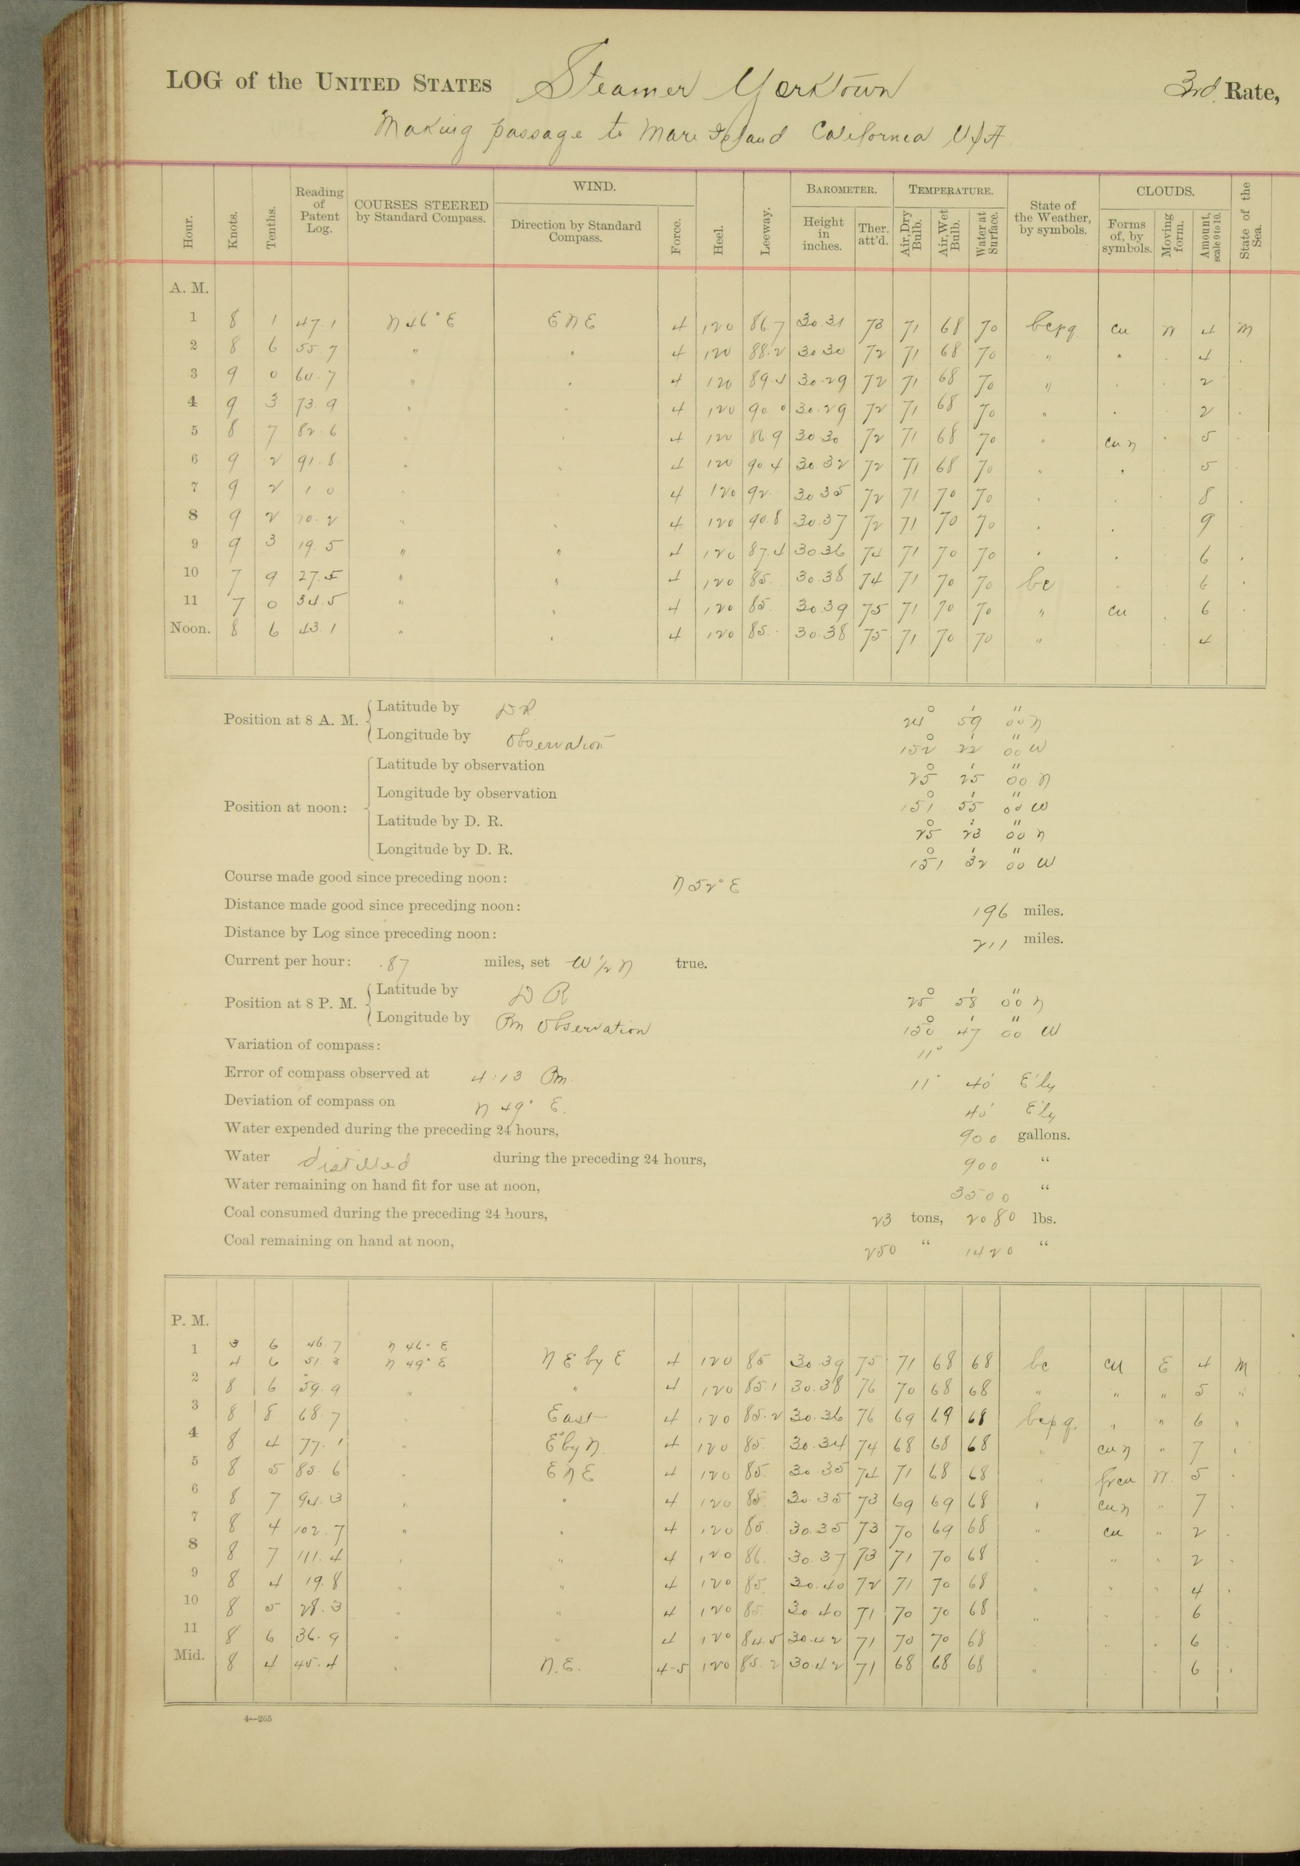 LOG of the UNITED STATES Steamer Yorktown 3rd Rate,
Making passage to Mare Island California U.S.A
Hour. Knots. Tenths. Reading of Patent Log. COURSES STEERED by Standard Compass. WIND. Direction by Standard Compass. Force. Heel. Leeway. BAROMETER. Height in inches. Ther. att'd. TEMPERATURE. Air, Dry Bulb. Air, Wet Bulb. Water at Surface. State of the Weather, by symbols. CLOUDS. Forms of, by symbols. Moving form. Amount, scale 0 to 10. State of the Sea.
A. M.
1 8 1 47.1 N 46° E ENE 4 120 86.7 30 31 73 71 68 70 bcpq cu N 4 M
2 8 6 55.7 " " 4 120 88.2 30 30 72 71 68 70 " " 4 "
3 9 0 64.7 " " 4 120 89.4 30.29 72 71 68 70 " " 2 "
4 9 3 73.9 " " 4 120 90.0 30.29 72 71 68 70 " " 2 "
5 8 7 82.6 " " 4 120 86 9 30 30 72 71 68 70 " cu n " 5 "
6 9 2 91.8 " " 4 120 90 4 30.32 72 71 68 70 " " 5 "
7 9 2 1 0 " " 4 120 92. 30 35 72 71 70 70 " " " 8 "
8 9 2 10.2 " " 4 120 90.8 30.37 72 71 70 70 " " " 9 "
9 9 3 19.5 " " 4 120 87.4 30 36 74 71 70 70 " " 6 "
10 7 9 27.5 " " 4 120 85. 30.38 74 71 70 70 bc " 6 "
11 7 0 34.5 " " 4 120 85. 30.39 75 71 70 70 " cu " 6 "
Noon. 8 6 43.1 " " 4 120 85. 30.38 75 71 70 70 " 4
Position at 8 A. M. Latitude by DR 24° 59' 00" N
Longitude by Observation 152° 22' 00" W
Position at noon: Latitude by observation 25° 25' 00" N
Longitude by observation 151° 55' 00" W
Latitude by D. R. 25° 23' 00" N
Longitude by D. R. 151° 32' 00" W
Course made good since preceding noon: N 52° E
Distance made good since preceding noon: 196 miles.
Distance by Log since preceding noon: 211 miles.
Current per hour: .87 miles, set W ½ N true.
Position at 8 P. M. Latitude by D R 25° 58' 00" N
Longitude by Pm Observation 150° 47' 00" W
Variation of compass: 11°
Error of compass observed at 4.13 Pm. 11° 40' E'ly
Deviation of compass on N 49° E. 40' E'ly
Water expended during the preceding 24 hours, 900 gallons.
Water distilled during the preceding 24 hours, 900 "
Water remaining on hand fit for use at noon, 3500 "
Coal consumed during the preceding 24 hours, 23 tons, 2080 lbs.
Coal remaining on hand at noon, 250 " 1420 "
P. M.
3 6 46.7 N 46° E
1 4 6 51.3 N 49° E NE by E 4 120 85 30.39 75 71 68 68 bc cu E 4 M
2 8 6 59.9 " " 4 120 85.1 30.38 76 70 68 68 " " " 5 "
3 8 8 68.7 " East 4 120 85.2 30.36 76 69 69 68 bcpq. " " 6 "
4 8 4 77.1 " E by N. 4 120 85. 30.34 74 68 68 68 " cu n " 7 "
5 8 5 85 6 " ENE 4 120 85. 30 35 74 71 68 68 " frcu N. 5 "
6 8 7 94.3 " " 4 120 85 30.35 73 69 69 68 " cu n " 7 "
7 8 4 102.7 " " 4 120 85. 30.35 73 70 69 68 " cu " 2 "
8 8 7 111.4 " " 4 120 86. 30.37 73 71 70 68 " " " 2 "
9 8 4 19.8 " " 4 120 85. 30.40 72 71 70 68 " " " 4 "
10 8 5 28.3 " 4 120 85. 30.40 71 70 70 68 " " 6 "
11 8 6 36.9 " " 4 120 84.5 30.42 71 70 70 68 " " 6 "
Mid. 8 4 45.4 " N.E. 4-5 120 85.2 30 42 71 68 68 68 " " 6 "
4—265